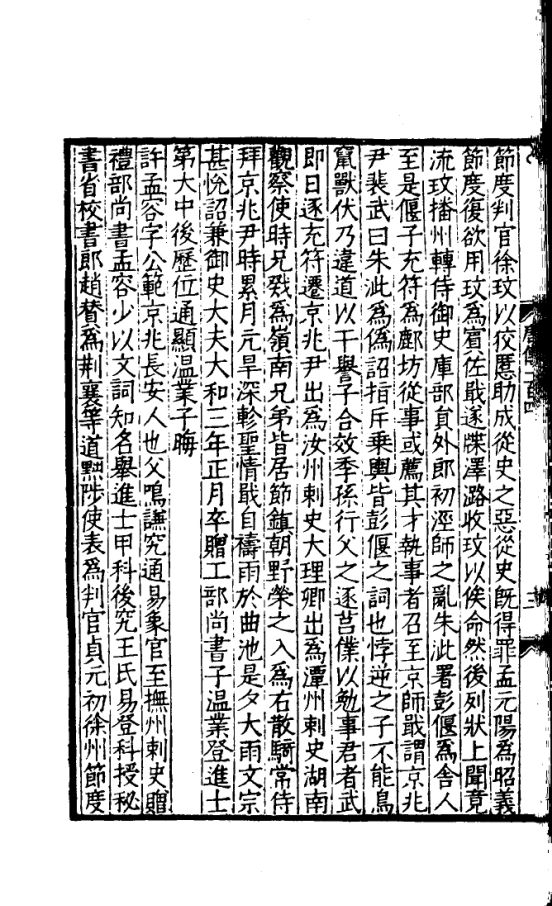 節度判官徐玟以狡慝助成從史之惡從史旣得罪孟元陽爲昭義
節度復欲用玟爲賓佐戢遂牒澤潞收玟以俟命然後列狀上聞竟
流玟播州轉侍御史庫部員外郎初涇師之亂朱泚署彭偃爲舍人
至是偃子充符爲鄜坊從事或薦其才執事者召至京師戢謂京兆
尹裴武曰朱泚爲僞詔指斥乘輿皆彭偃之詞也悖逆之子不能鳥
竄獸伏乃違道以干譽子合效季孫行父之逐莒僕以勉事君者武
卽日逐充符遷京兆尹出爲汝州刺史大理卿出爲潭州刺史湖南
觀察使時兄戣爲嶺南兄弟皆居節鎮朝野榮之入爲右散騎常侍
拜京兆尹時累月亢旱深軫聖情戢自禱雨於曲池是夕大雨文宗
甚悅詔兼御史大夫大和三年正月卒贈工部尚書子温業登進士
第大中後歷位通顯温業子晦
許孟容字公範京兆長安人也父鳴謙究通易象官至撫州刺史贈
禮部尚書孟容少以文詞知名舉進士甲科後究王氏易登科授秘
書省校書郎趙贊爲荆襄等道黜陟使表爲判官貞元初徐州節度